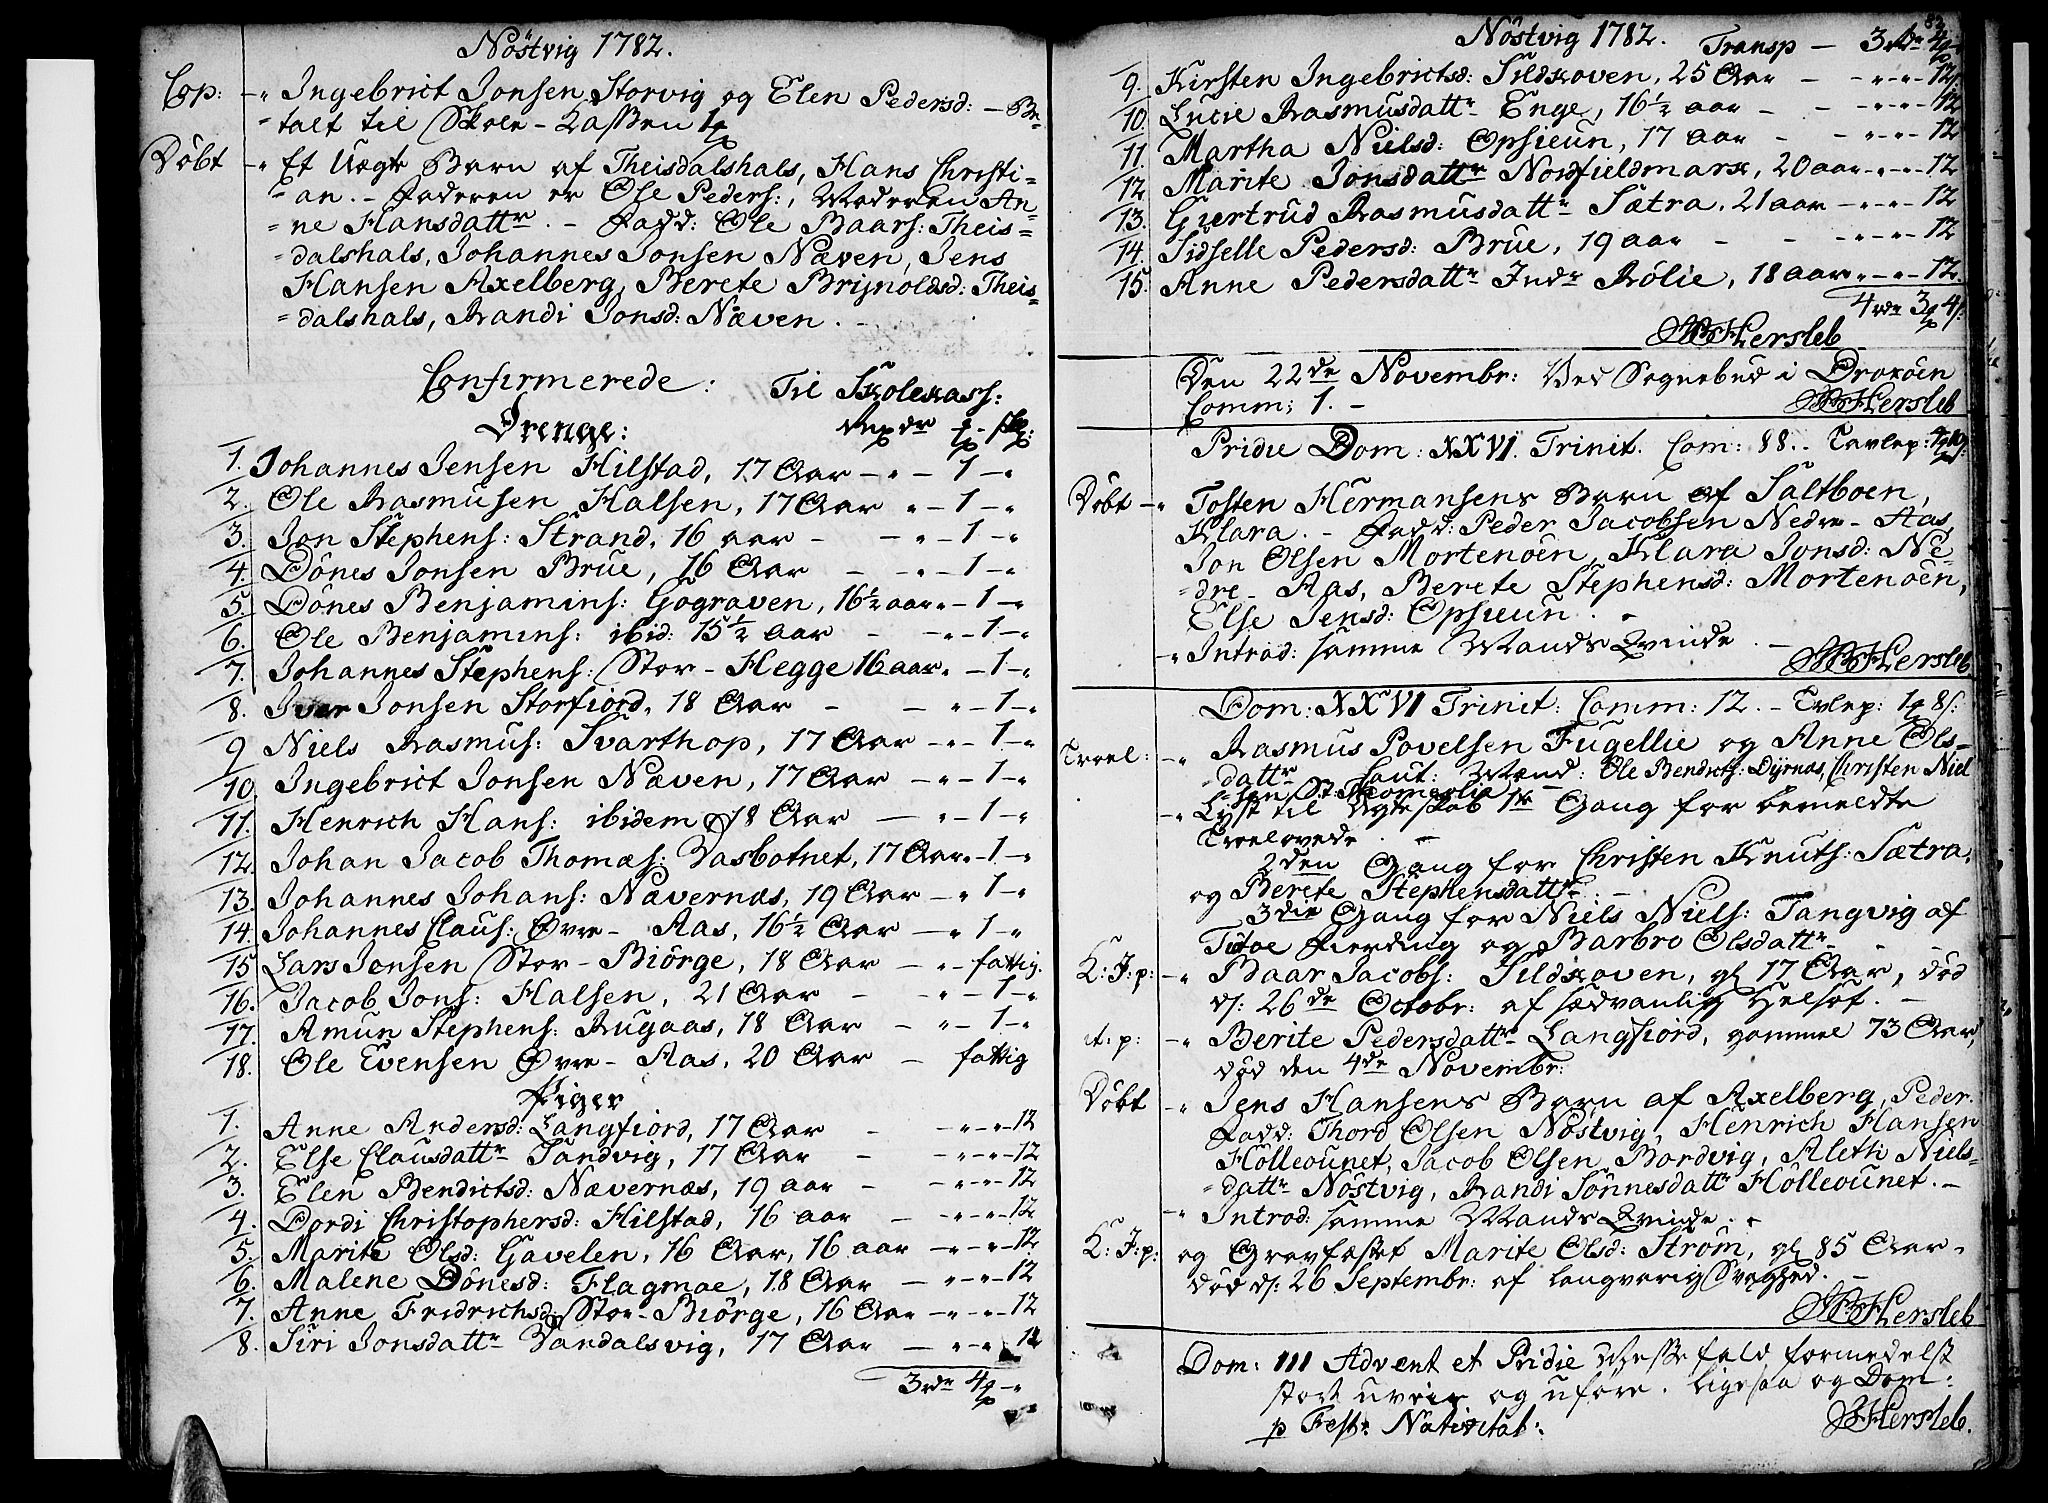 Nöstvig 1782.
Cop: -" Ingebrict Jonsen Storvig og Elen Pedersd: - Be-
"talt til Skole-Cassen 1
Döbt -" Et Uægte Barn af Theisdalshals, Hans Christi-
"an. - Faderen er Ole Peders:, Moderen An-
"ne Hansdattr. - Fadd: Ole Baars: Theis-
"dalshals, Johannes Jonsen Næven, Jens
Hansen Axelberg, Berete Brijnoldsd: Theis-
"dalshals, Randi Jonsd: Næven. -
Confirmerede: Til Skolekass:
Drenge:
1. Johannes Jensen Hilstad, 17 Aar -"-1-"
2. Ole Rasmusen Halsen, 17 Aar "-1-"
3. Jon Stephens: Strand, 16 aar - -"-1-"
4. Dönes Jonsen Brue, 16 Aar - -"-1-"
5. Dönes Benjamins: Gograven, 16½ aar "-1-"
6. Ole Benjamins: ibid: 15½ aar - -"-1-"
7. Johannes Stephens: Stor-Hegge 16 aar "-1-"
8. Iver Jonsen Storfiord, 18 Aar - -"-1-"
9 Niels Rasmus: Svarthop, 17 Aar -"-1-"
10. Ingebrict Jonsen Næven, 17 Aar -"-1-"
11. Henrich Hans: ibidem 18 Aar -"-1-"
12. Johan Jacob Thomæs: Vasbotnet, 17 Aar "-1-"
13. Johannes Johans: Nævernæs, 19 Aar -"1-"
14. Johannes Claus: Øvre-Aas, 16½ Aar -"1-"
15 Lars Jensen Stor-Biörge, 18 Aar -"- fattig.
16. Jacob Jons: Halsen, 21 Aar - "-1-"
17. Amun Stephens: Rugaas, 18 Aar -"-1-"
18. Ole Evensen Øvre-Aas, 20 Aar - fattig
Piger
1. Anne Andersd: Langfiord, 17 Aar - -"-"-12
2. Else Clausdattr Sandvig, 17 Aar - -"-"-12
3. Elen Bendictsd: Nævernæs, 19 aar - -"-"-12
4. Dordi Christophersd: Hilstad, 16 aar - -"-"-12
5. Marite Olsd: Gavelen, 16 Aar, 16 aar -"-"-12
6. Malene Dönesd: Flagmoe, 18 Aar -"-"-12
7. Anne Fridrichsd: Stor-Biörge, 16 Aar -"-"-12
8. Siri Jonsdattr Vandalsvig, 17 Aar -"-"-12
3 rdr 4 -"
Nöstvig 1782. Transp - 3 rdr 4
9. Kirsten Ingebrictsd: Sildkoven, 25 Aar - -"-"-12
10. Lucie Rasmusdattr Enge, 16½ aar - - -"-"-12
11. Martha Nielsd: Opsieun, 17 aar - -"-"-12
12 Marite Jonsdattr Nordfieldmark, 20 aar -"-"-12
13. Giertrud Rasmusdattr Sætra, 21 aar -"-"-12
14. Sidselle Pedersd: Brue, 19 aar - - -"-"-12
15. Anne Pedersdattr Indr Rölie, 18 aar "-"-12.
4 rdr 3 4 s:
Hersleb
Den 22de Novembr: Ved Sognebud i Droxöen
Comm: 1. - Hersleb
Pridie Dom: XXVI. Trinit. Com: 88. -
Döbt -" Tosten Hermansens Barn af Saltboen,
Klara. - Fadd: Peder Jacobsen Nedre-Aas,
Jon Olsen Mortenöen, Klara Jonsd: Ne-
"dre-Aas, Berete Stephensd: Mortenöen,
Else Jensd: Opsieun. -
-" Introd: samme Mands Qvinde. - Hersleb
Dom: XXVI Trinit: Comm: 12. - 1 8 s:
Troel: -" Rasmus Povelsen Fugellie og Anne Ols-
"dattr Caut: Mænd: Ole Bendicts: Dyrnæs, Christen Niel
"sen
-" Lyst til Ægteskab 1te Gang for bemeldte
Troelovede. -
2den Gang for Christen Knuts: Sætra,
og Berete Stephensdattr. -
3die Gang for Niels Niels: Tangvig af
fierding og Barbro Olsdattr
-" Baar Jacobs: Sildkoven, gl 17 Aar, död
d: 26de Octobr: af sædvanlig Helsot. -
-" Berite Pedersdattr Langfiord, gamme 73 Aar,
död den 4de Novembr:
Döbt -" Jens Hansens Barn af Axelberg, Peder.
Fadd: Thord Olsen Nöstvig, Henrich Hansen
Hölleounet, Jacob Olsen Bordvig, Aleth Niels-
"dattr Nöstvig, Randi Sönnesdattr Hölleounet. -
-" Introd: samme Mands Qvinde. -
og Gravfæstet Marite Olsd: Ström, gl 85 Aar.
död d: 26 Septembr: af langvarig Svaghed. -
Hersleb
Dom: III Advent et Pridie Messefald formedelst
stort uveir og uföre. ligesaa og Dom:
p Festr Nativitat: Hersleb.